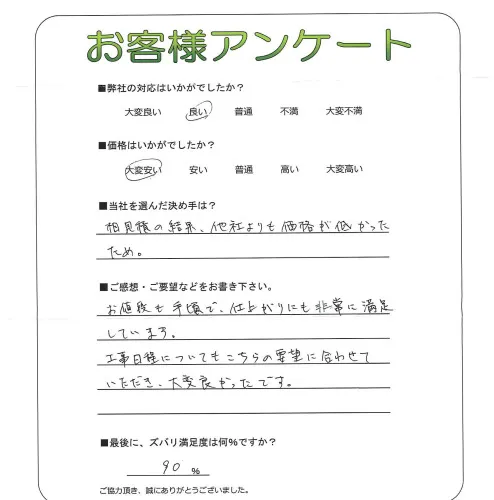 お客様アンケート
■弊社の対応はいかがでしたか？
大変良い 良い 普通 不満 大変不満
■価格はいかがでしたか？
大変安い 安い 普通 高い 大変高い
■当社を選んだ決め手は？
相見積の結果、他社よりも価格が低かった
ため。
■ご感想・ご要望などをお書き下さい。
お値段も手頃で、仕上がりにも非常に満足
しています。
工事日程についてもこちらの要望に合わせて
いただき、大変良かったです。
■最後に、ズバリ満足度は何%ですか？
90 %
ご協力頂き、誠にありがとうございました。